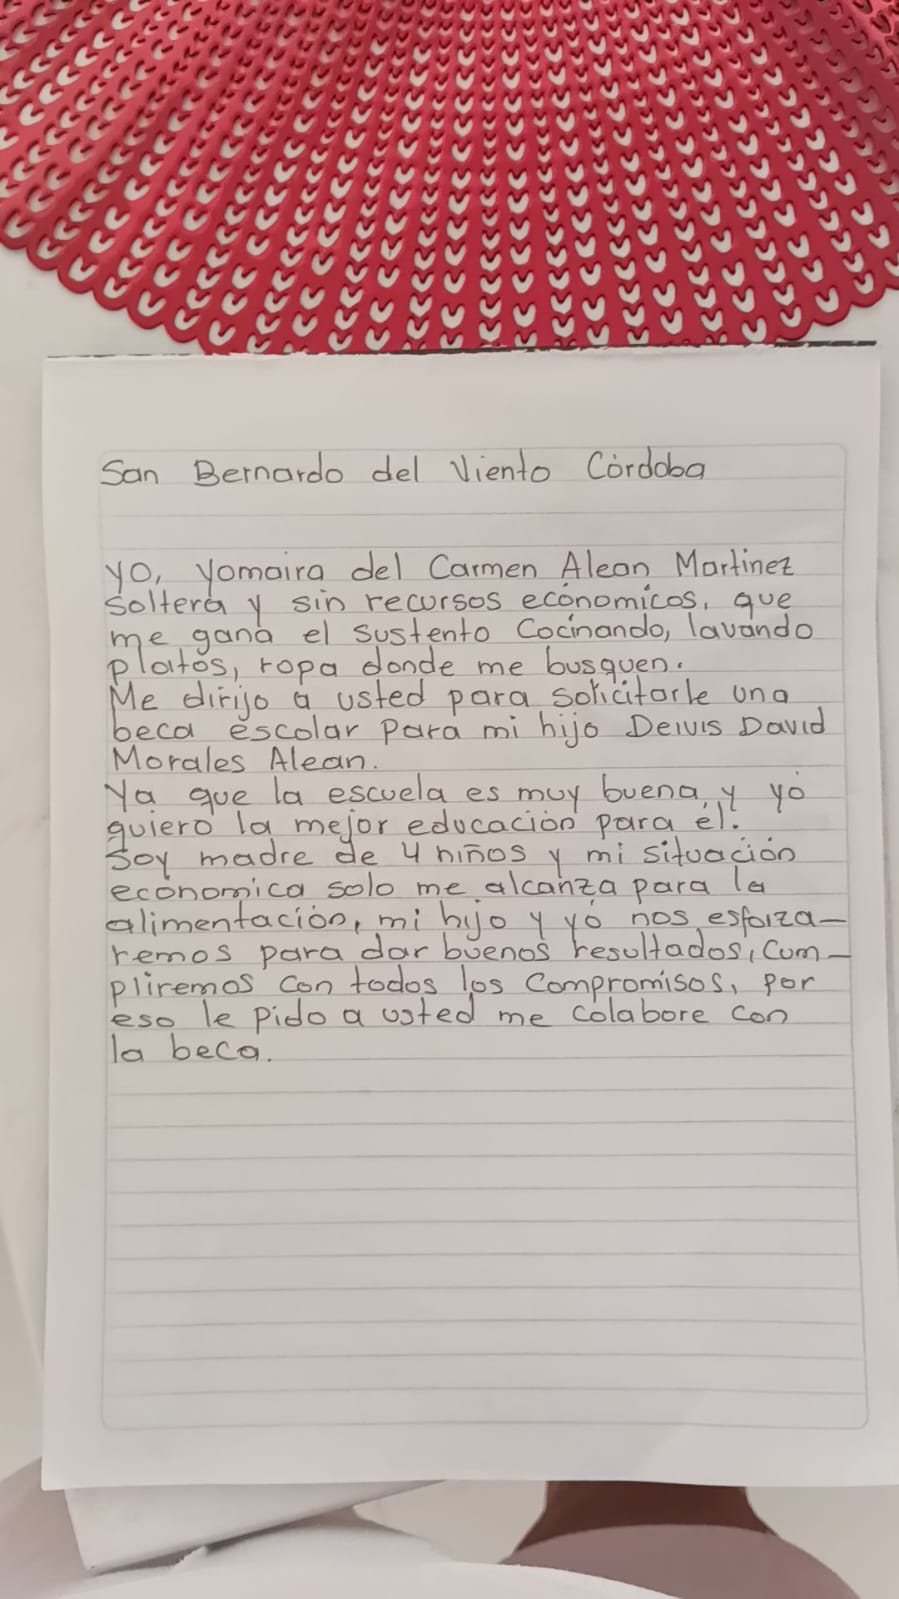 San Bernardo del Viento Córdoba
Yo, Yomaira del Carmen Alean Martinez
Soltera y sin recursos económicos, que
me gana el sustento Cocinando, lavando
platos, ropa donde me busquen.
Me dirijo a usted para solicitarle una
beca escolar para mi hijo Deivis David
Morales Alean.
Ya que la escuela es muy buena, y yo
quiero la mejor educación para él.
Soy madre de 4 niños y mi situación
económica solo me alcanza para la
alimentación, mi hijo y yo nos esforza-
remos para dar buenos resultados, Cum-
pliremos con todos los compromisos, por
eso le pido a usted me colabore con
la beca.